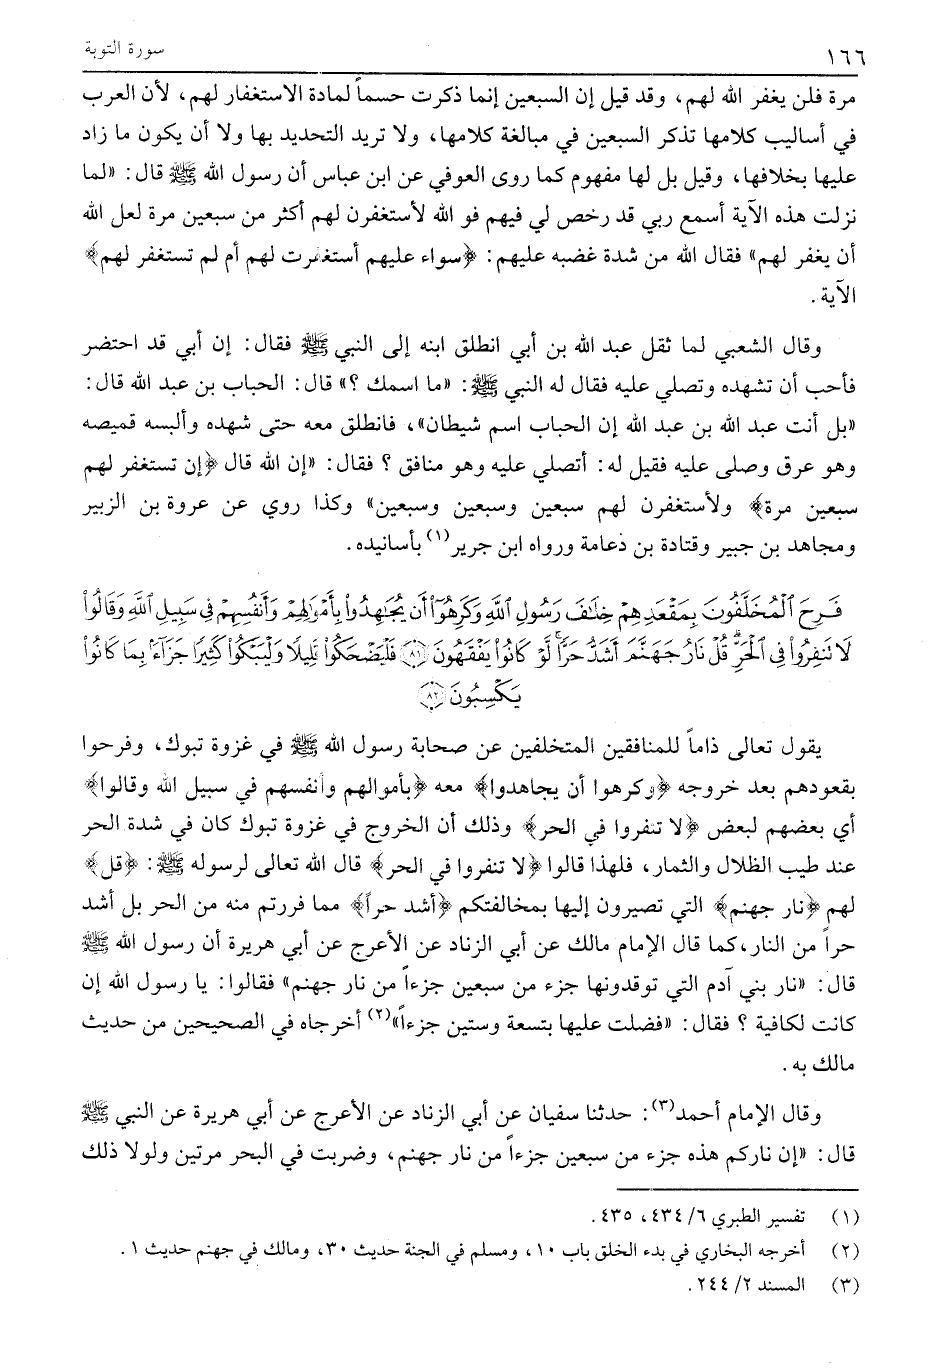 ١٦٦
سورة التوبة
مرة فلن يغفر الله لهم، وقد قيل إن السبعين إنما ذكرت حسماً لمادة الاستغفار لهم، لأن العرب
في أساليب كلامها تذكر السبعين في مبالغة كلامها، ولا تريد التحديد بها ولا أن يكون ما زاد
عليها بخلافها، وقيل بل لها مفهوم كما روى العوفي عن ابن عباس أن رسول الله ﷺ قال: «لما
نزلت هذه الآية أسمع ربي قد رخص لي فيهم فو الله لأستغفرن لهم أكثر من سبعين مرة لعل الله
أن يغفر لهم» فقال الله من شدة غضبه عليهم: ﴿سواء عليهم أستغفرت لهم أم لم تستغفر لهم﴾
الآية.
وقال الشعبي لما ثقل عبد الله بن أبي انطلق ابنه إلى النبي ﷺ فقال: إن أبي قد احتضر
فأحب أن تشهده وتصلي عليه فقال له النبي ﷺ: «ما اسمك ؟» قال: الحباب بن عبد الله قال:
«بل أنت عبد الله بن عبد الله إن الحباب اسم شيطان»، فانطلق معه حتى شهده وألبسه قميصه
وهو عرق وصلى عليه فقيل له: أتصلي عليه وهو منافق ؟ فقال: «إن الله قال ﴿إن تستغفر لهم
سبعين مرة﴾ ولأستغفرن لهم سبعين وسبعين وسبعين» وكذا روي عن عروة بن الزبير
ومجاهد بن جبير وقتادة بن دعامة ورواه ابن جرير(١) بأسانيده.
فَرِحَ ٱلْمُخَلَّفُونَ بِمَقْعَدِهِمْ خِلَٰفَ رَسُولِ ٱللَّهِ وَكَرِهُوٓا۟ أَن يُجَٰهِدُوا۟ بِأَمْوَٰلِهِمْ وَأَنفُسِهِمْ فِى سَبِيلِ ٱللَّهِ وَقَالُوا۟
لَا تَنفِرُوا۟ فِى ٱلْحَرِّ ۗ قُلْ نَارُ جَهَنَّمَ أَشَدُّ حَرًّا ۚ لَّوْ كَانُوا۟ يَفْقَهُونَ ﴿٨١﴾ فَلْيَضْحَكُوا۟ قَلِيلًا وَلْيَبْكُوا۟ كَثِيرًا جَزَآءًۢ بِمَا كَانُوا۟
يَكْسِبُونَ ﴿٨٢﴾
يقول تعالى ذاماً للمنافقين المتخلفين عن صحابة رسول الله ﷺ في غزوة تبوك، وفرحوا
بقعودهم بعد خروجه ﴿وكرهوا أن يجاهدوا﴾ معه ﴿بأموالهم وأنفسهم في سبيل الله وقالوا﴾
أي بعضهم لبعض ﴿لا تنفروا في الحر﴾ وذلك أن الخروج في غزوة تبوك كان في شدة الحر
عند طيب الظلال والثمار، فلهذا قالوا ﴿لا تنفروا في الحر﴾ قال الله تعالى لرسوله ﷺ: ﴿قل﴾
لهم ﴿نار جهنم﴾ التي تصيرون إليها بمخالفتكم ﴿أشد حراً﴾ مما فررتم منه من الحر بل أشد
حراً من النار،كما قال الإمام مالك عن أبي الزناد عن الأعرج عن أبي هريرة أن رسول الله ﷺ
قال: «نار بني آدم التي توقدونها جزء من سبعين جزءاً من نار جهنم» فقالوا: يا رسول الله إن
كانت لكافية ؟ فقال: «فضلت عليها بتسعة وستين جزءاً»(٢) أخرجاه في الصحيحين من حديث
مالك به.
وقال الإمام أحمد(٣): حدثنا سفيان عن أبي الزناد عن الأعرج عن أبي هريرة عن النبي ﷺ
قال: «إن ناركم هذه جزء من سبعين جزءاً من نار جهنم، وضربت في البحر مرتين ولولا ذلك
(١) تفسير الطبري ٦/ ٤٣٤، ٤٣٥.
(٢) أخرجه البخاري في بدء الخلق باب ١٠، ومسلم في الجنة حديث ٣٠، ومالك في جهنم حديث ١.
(٣) المسند ٢/ ٢٤٤.